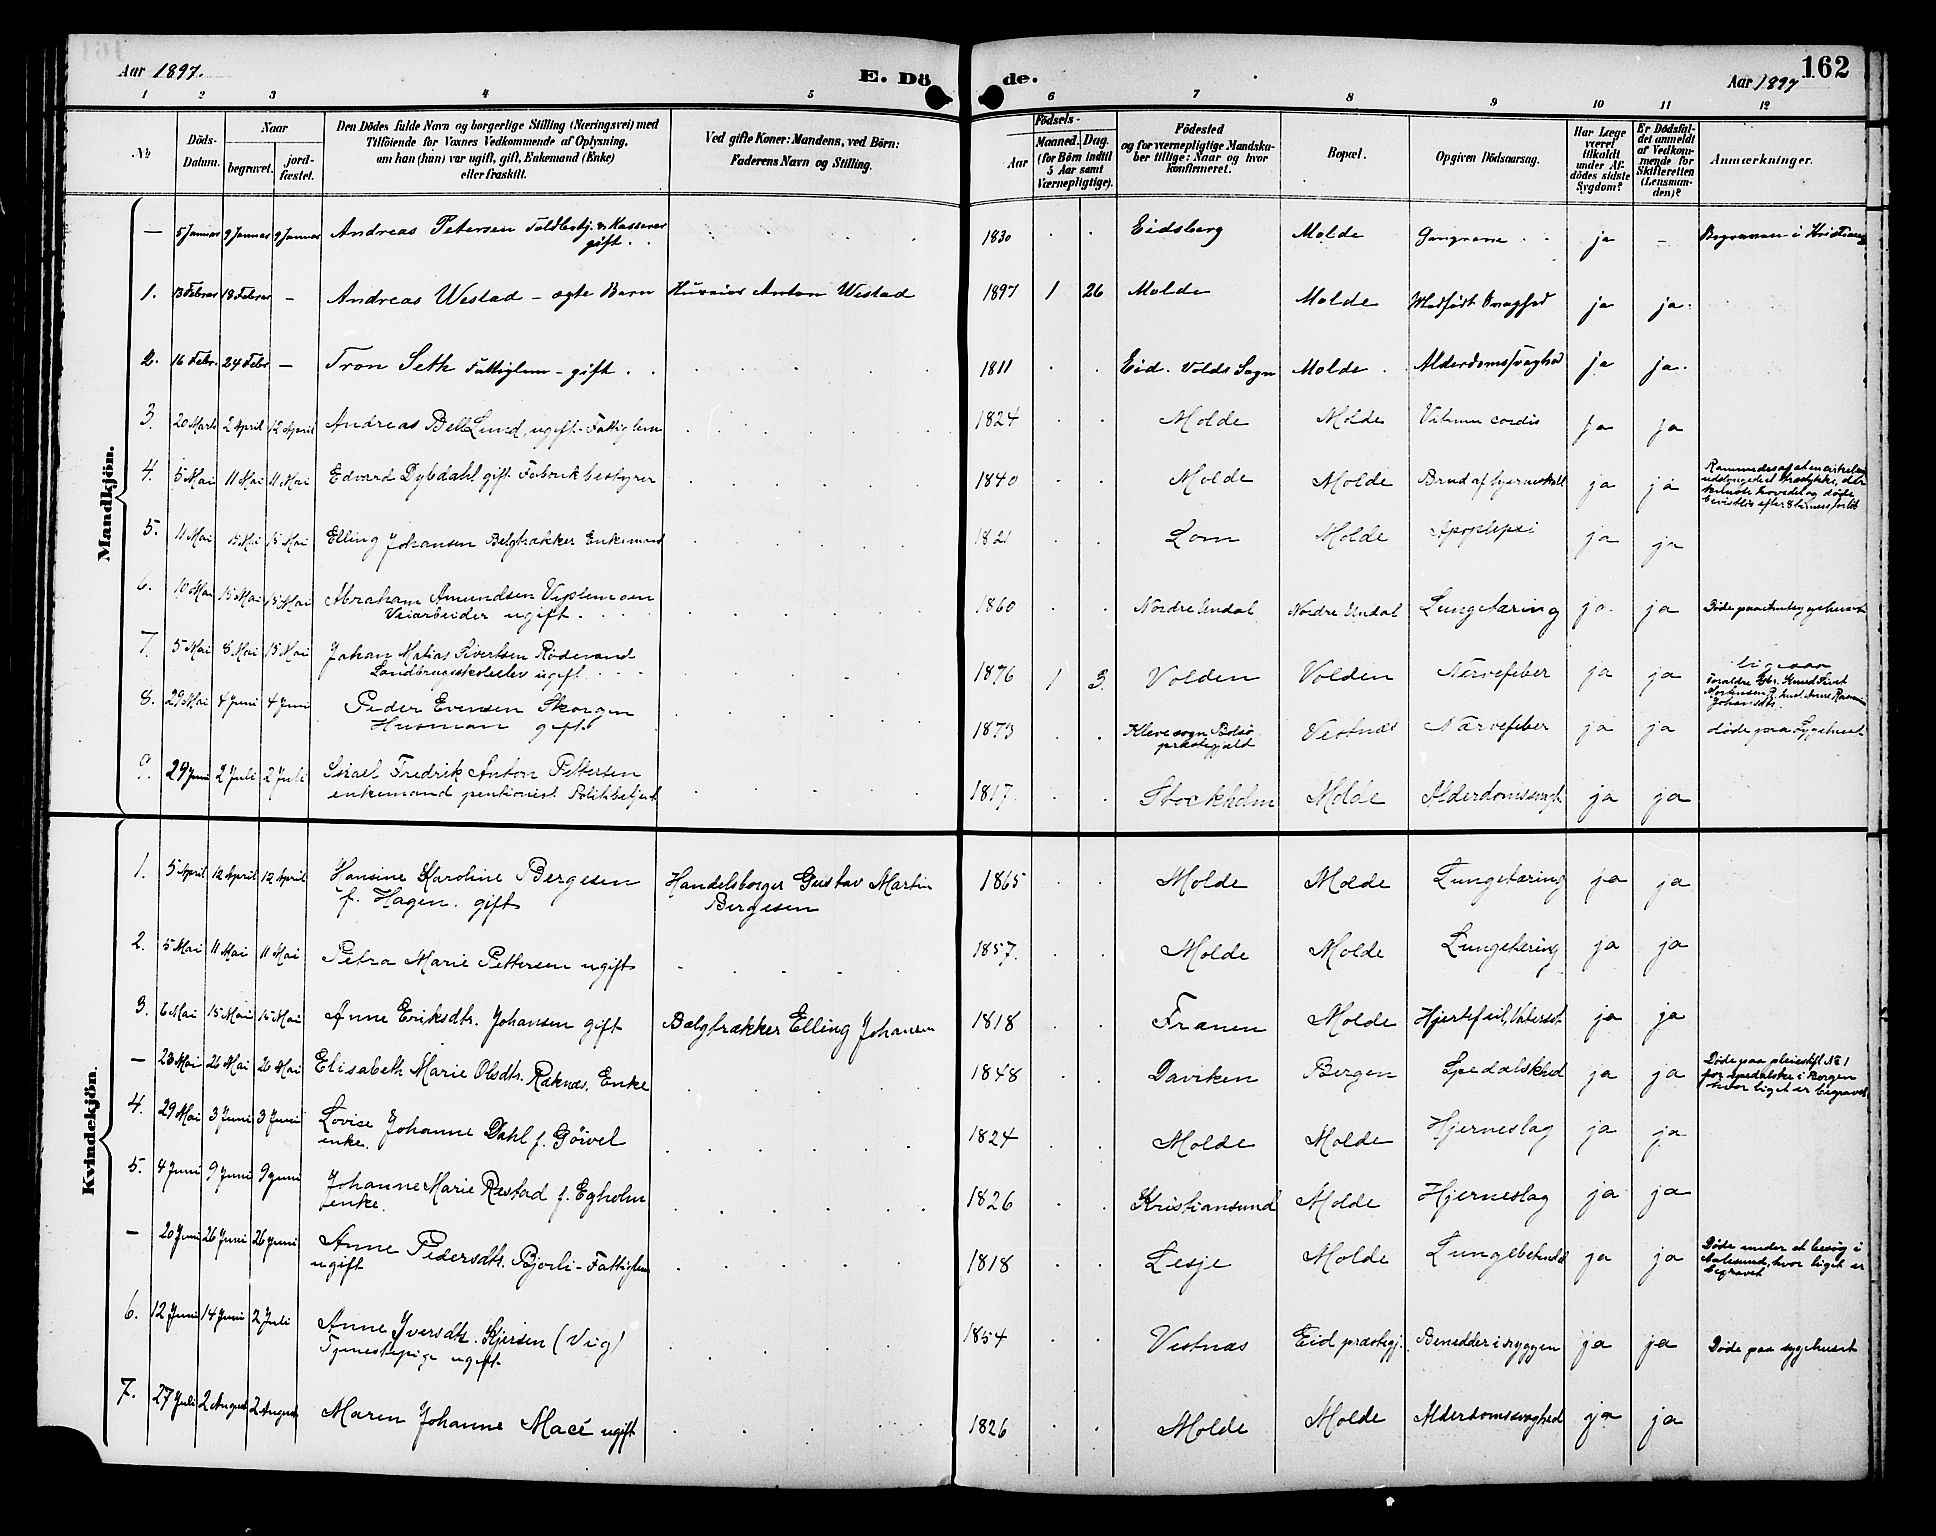 Aar 1897.
E. Döde.
Aar 1897
162
1 2 3 4 5 6 7 8 9 10 11 12
№
Döds-Datum.
Naar
begravet.
jordfæstet.
Den Dödes fulde Navn og borgerlige Stilling (Næringsvei) med
Tilföiende for Voxnes Vedkommende af Oplysning,
om han (hun) var ugift, gift, Enkemand (Enke)
eller fraskilt.
Ved gifte Koner: Mandens, ved Börn:
Faderens Navn og Stilling.
Födsels-
Aar
Maaned. Dag.
(for Börn indtil
5 Aar samt
Værnepligtige).
Födested
og for værnepligtige Mandskaber tillige: Naar og hvor
konfirmeret.
Bopæl.
Opgiven Dödsaarsag.
Har Læge
været
tilkaldt
under Afdödes sidste
Sygdom?
Er Dödsfaldet anmeldt
af Vedkommende for
Skifteretten
(Lensmanden)?
Anmærkninger.
Mandkjön.
— 5 Januar 9 Januar 9 Januar Andreas Petersen Toldbetj. & Kasserer 1830 Eidsberg Molde Gangræne ja — Begraven i Kristians
gift
1. 13 Februar 18 Februar — Andreas Westad – ægte Barn Anton Westad 1897 1 26 Molde Molde Medfødt Svaghed ja ja.
2. 16 Febr. 24 Febr — Tron Seth Fattiglem – gift 1811 Eid. Volds Sogn Molde Alderdomssvaghed ja ja.
3. 20 Marts 2 April 12 April Andreas Bell Lund, ugift Fattiglem 1824 Molde Molde Vitium cordis ja ja
4. 5 Mai 11 Mai 11 Mai Edvard Dybdahl gift Fabrikbestyrer 1840 Molde Molde Brud af hjerneskall ja ja
Rammedes af et en cirkelsag
udslynget Træstykke, der
knuste hovedet og døde
5. 11 Mai 15 Mai 15 Mai Elling Johansen Belgtrækker Enkemand 1821 Lom Molde Apoplepxi ja ja
6. 10 Mai 15 Mai 15 Mai Abraham Amundsen 1860 Nordre Undal Nordre Undal Lungetæring ja. ja Døde paa Amtssygehuset
Veiarbeider ugift
7. 5 Mai 8 Mai 15 Mai Johan Matias Sivertsen Rødsand 1876 1 3. Volden Volden Nærvefeber ja ja ligesaa
Landbrugsskoleelev ugift
8. 29 Mai 4 Juni 4 Juni Peder Evensen Skorgen 1873 Klevesogn Bolsø Vestnæs Nærvefeber ja ja døde paa Sygehuset
Husman gift præstegjæld
9. 29 Juni 2 Juli 2 Juli Israel Fredrik Anton Pettersen 1817. Stockholm Molde Alderdomssvagh. ja ja
enkemand pentionist Politibetjent
Kvindekjön.
1. 5 April 12 April 12 April Hansine Karoline Bergesen Handelsborger Gustav Martin 1865 Molde Molde Lungetæring ja ja
f. Hagen. gift Bergesen
2. 5 Mai 11 Mai 11 Mai Petra Marie Pettersen ugift 1857. Molde Molde Lungetæring ja ja
3. 6 Mai 15 Mai 15 Mai Anne Eriksdtr. Johansen gift Bælgtrækker Elling Johansen 1818 Frænen Molde Hjertefeil, Vatersot ja ja
— 23 Mai 26 Mai 26 Mai Elisabeth Marie Olsdtr. Raknæs, Enke 1848 Daviken Bergen Spedalskhed ja ja
Døde paa pleiestift. No 1
for spedalske i Bergen
hvor liget er begravet
4. 29 Mai 3 Juni 3 Juni Lovise Johanne Dahl f. Gørvel 1824 Molde Molde Hjerneslag ja ja
enke.
5. 4 Juni 9 Juni 9 Juni Johanne Marie Røstad f. Egholm 1826 Kristiansund Molde Hjerneslag ja ja
enke.
— 20 Juni 26 Juni 26 Juni Anne Pedersdtr. Bjorli – Fattiglem 1818 Lesje Molde ja ja
ugift
Døde under et besøg i
Aalesund, hvor liget er
begravet
6. 12 Juni 14 Juni 2 Juli Anne Iversdtr. Kjersen (Vig) 1854 Vestnæs Eid præstegj. Benedder i ryggen ja ja Døde paa sygehuset
Tjenestepige ugift
7. 27 Juli 2 August 2 August Maren Johanne Macé ugift 1826 Molde Molde Alderdomssvaghed ja ja